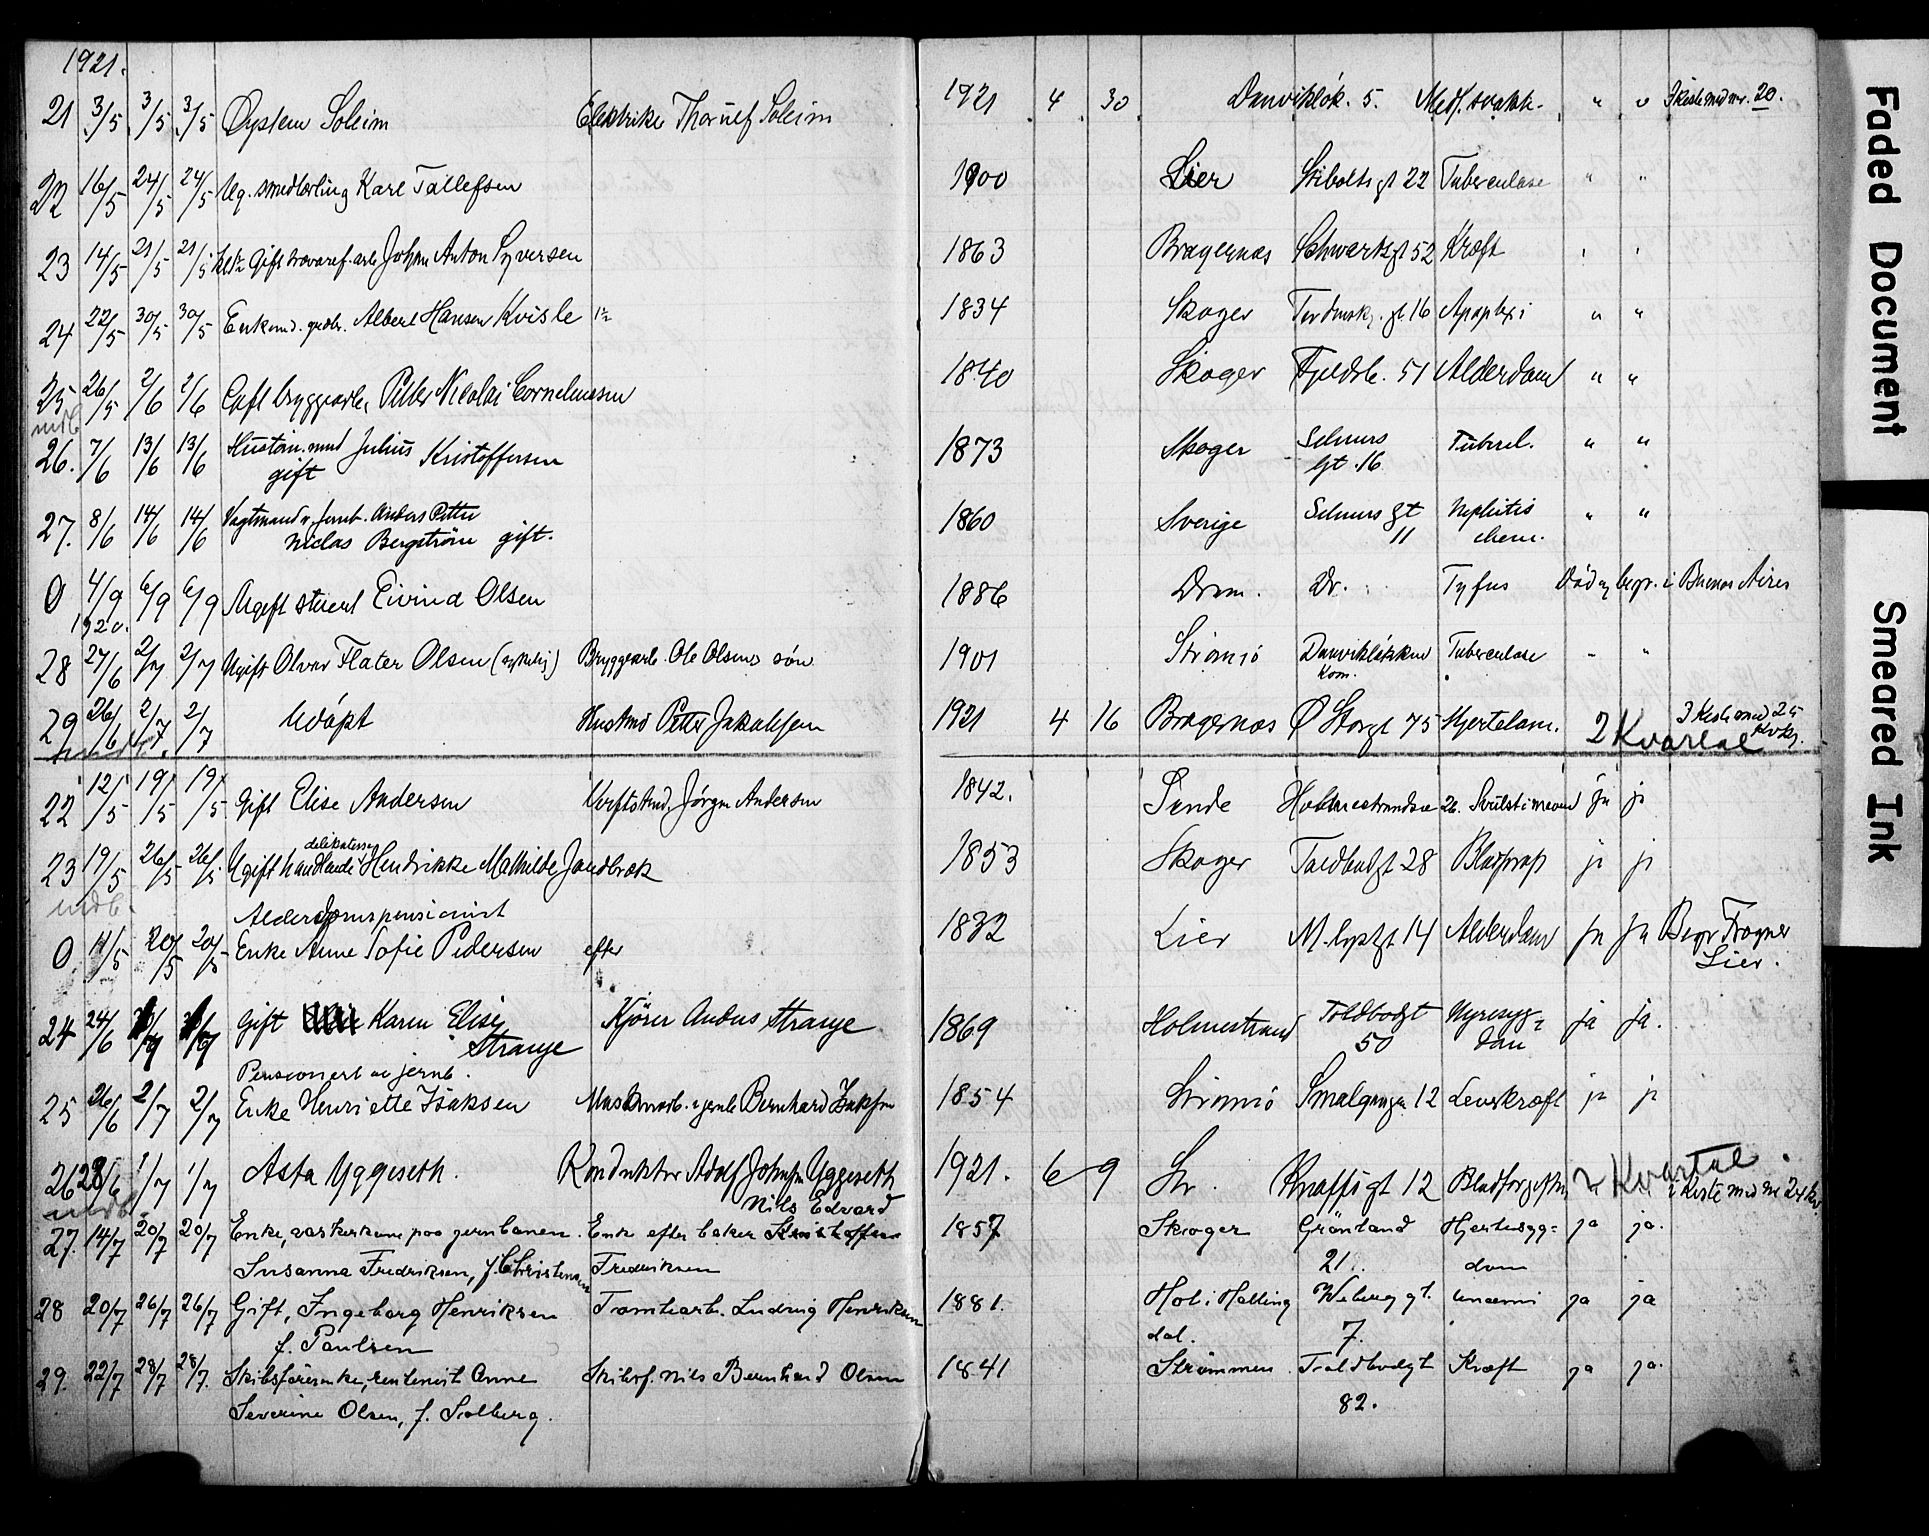 1921.
21 3/5 3/5 3/5 Øystein Soleim Elektriker Thorulf Soleim 1921 4 30 Danvikløk. 5. Medf. svakh. " " I kiste med nr. 20.
22 16/5 24/5 24/5 Ug. smedlærling Karl Tallefsen 1900 Lier Stiboltsgt 22 Tuberculose " "
23 14/5 21/5 21/5 Gift trævaref. arb Johan Anton Syversen 1863 Bragernæs Schwartzgt 52 Kræft " "
24 22/5 30/5 30/5 Enkemd. grdbr. Albert Hansen Kvisle 1834 Skoger Tordenskj. gt. 16 Apoplexi " "
25 26/5 2/6 2/6 Gift bryggearb. Petter Nicolai Corneliussen 1840 Skoger Fjeldsb. 51 Alderdom " "
indb
26. 7/6 13/6 13/6 Julius Kristoffersen 1873 Skoger Selmers gt. 16 Tuberc. " "
gift
27. 8/6 14/6 14/6 Vagtmand v. Jernb. Anders Petter 1860 Sverige Selmers gt 11 Nephritis chron. " "
Niclas Bergström gift.
0 4/9 6/9 6/9 Ugift stuert Eivind Olsen 1886 Dram. Dr. Tyfus Død og begr. i Buenos Aires
1920.
28 27/6 2/7 2/7 Ugift Olver Flater Olsen Bryggearb. Ole Olsens søn 1901 Strømsø Danvikløkken Kom. Tuberculose " "
29 26/6 2/7 2/7 Udøpt Hustru Petter Jakobsen 1921 4 16 Bragernæs Ø Storgt 75 Hjertelam. 2 Kvartal I kiste med 25 Kvkj.
22 12/5 19/5 19/5 Gift Elise Andersen Verftstmd. Jørgen Andersen 1842. Sande Holmestrandsv 26. ja ja
delikatesse
23 19/5 26/5 26/5 Ugift handlende Hendrikke Mathilde Jondbræk 1853 Skoger Toldbodgt 28 Blodprop ja ja
indb.
Alderdomspensionist
0 11/5 20/5 20/5 Enke Anne Sofie Pedersen efter 1832 Lier 14 Alderdom ja ja Begr Frogner Lier.
24 24/6 2/7 2/7 Gift Karen Elise Kjører Anders Strange 1869 Holmestrand Toldbodgt 50 Nyresyg= dom ja ja.
Strange
Pensionert av jernb.
25 26/6 2/7 2/7 Enke Henriette Isaksen Maskinarb. v jernb Bernhard Isaksen 1854 Strømsø Smalgangen 12 Leverkræft ja ja
26 28/6 1/7 1/7 Asta Yggeseth. Konduktør Adolf Johnsen Yggeseth 1921. 6 9 Str. Knoffsgt 12 Blodforgiftn. 2 Kvartal. i kiste med nr 24 kv
indb. Nils Edvard
27. 14/7 20/7 20/7 Enke, vaskerkone paa jernbanen. Enke efter baker Kristoffer 1857 Skoger Grønland 21. Hjertesyg= dom ja ja.
Susanna Fredriksen, f. Christensen Fredriksen
28 20/7 26/7 26/7 Gift, Ingeborg Henriksen Tomtearb. Ludvig Henriksen 1881. Hol i Halling dal. Weberg gt. 7. Uræmi ja ja
f. Paulsen
29. 22/7 28/7 28/7. Skibsførerenke, rentenist Anne Skibsf. Nils Bernhard Olsen 1841 Strømmen Toldbodgt 82. Kræft ja ja.
Severine Olsen, f. Solberg.
Faded Document
Smeared Ink